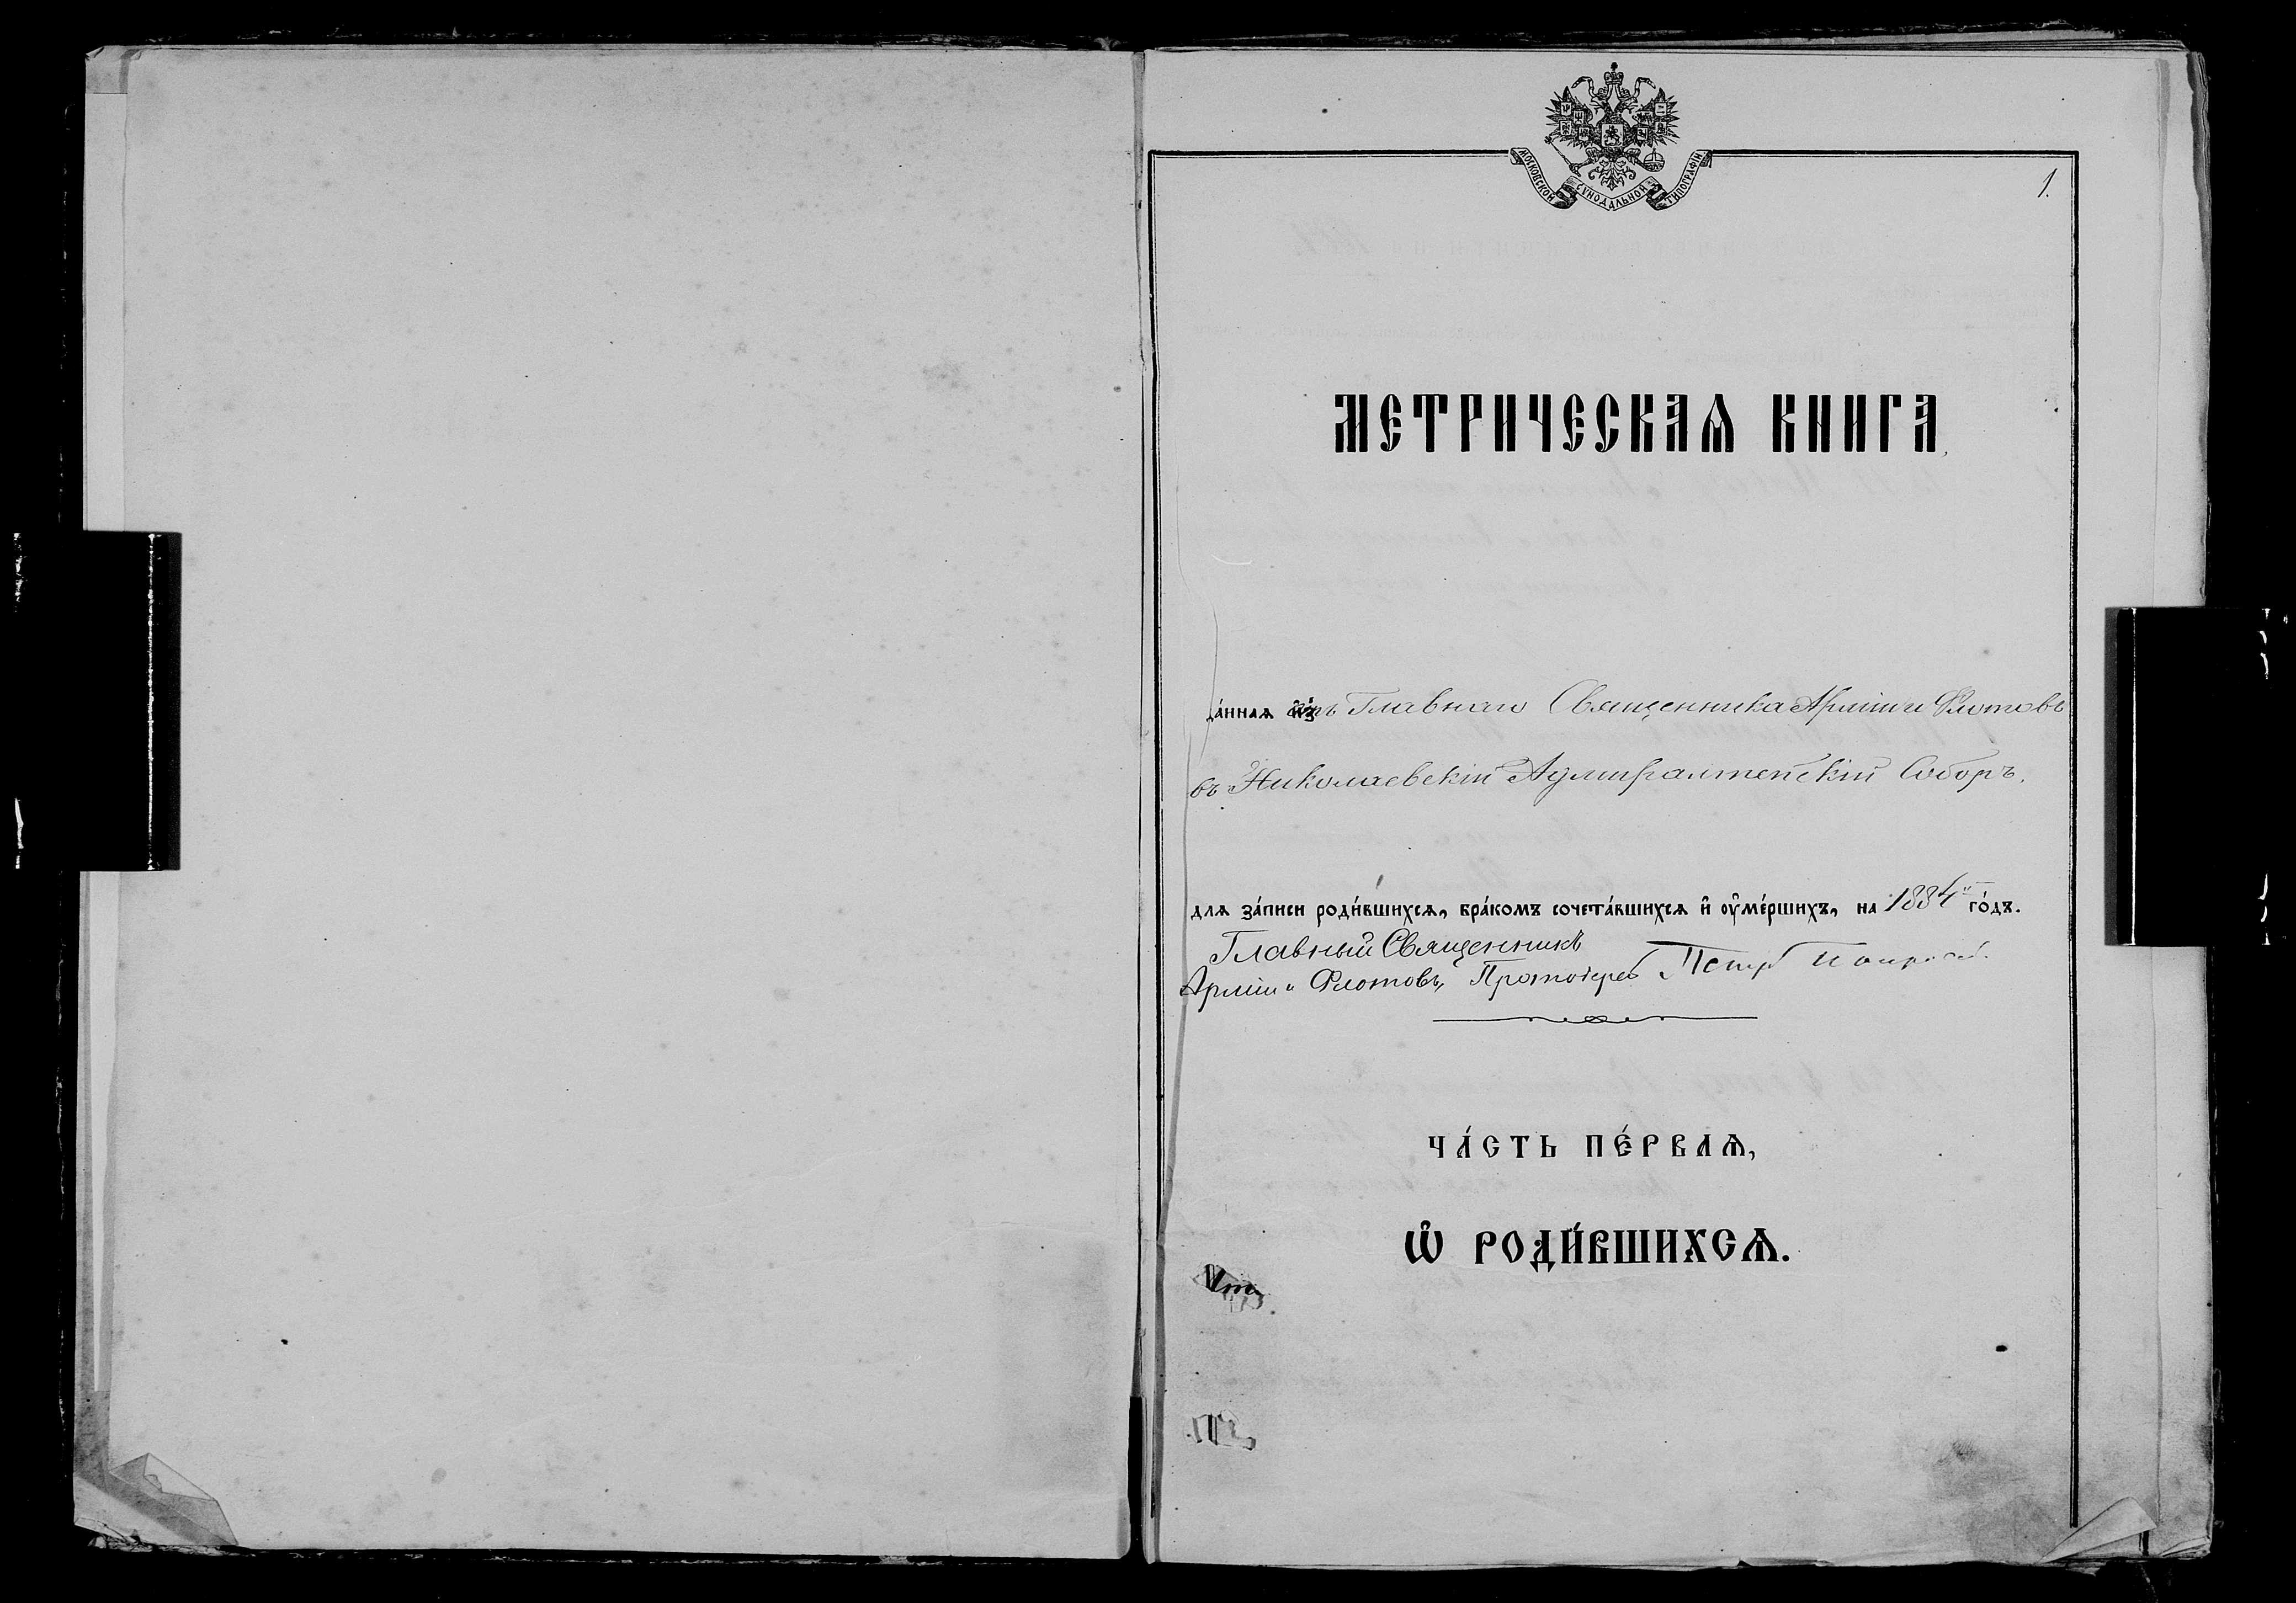 МОСКОВСКОЙ СѴНОДАЛЬНОЙ ТИПОГРАФІИ
1.
МЕТРИЧЕСКАѦ КНИГА
да́ннаѧ отъ Главнаго Священника Арміи и Флотовъ
въ Николаевскій Адмиралтейскій Соборъ.
для за́писи роди́вшихсѧ, бра́комъ сочета́вшихсѧ и҆ ᲂу҆ме́ршихъ, на 1884й го́дъ.
Главный Священникъ
Арміи и Флотовъ, Протоіерей Петръ
ЧА́СТЬ ПЕ́РВАѦ,
Ѡ҆ РОДИ́ВШИХСѦ.